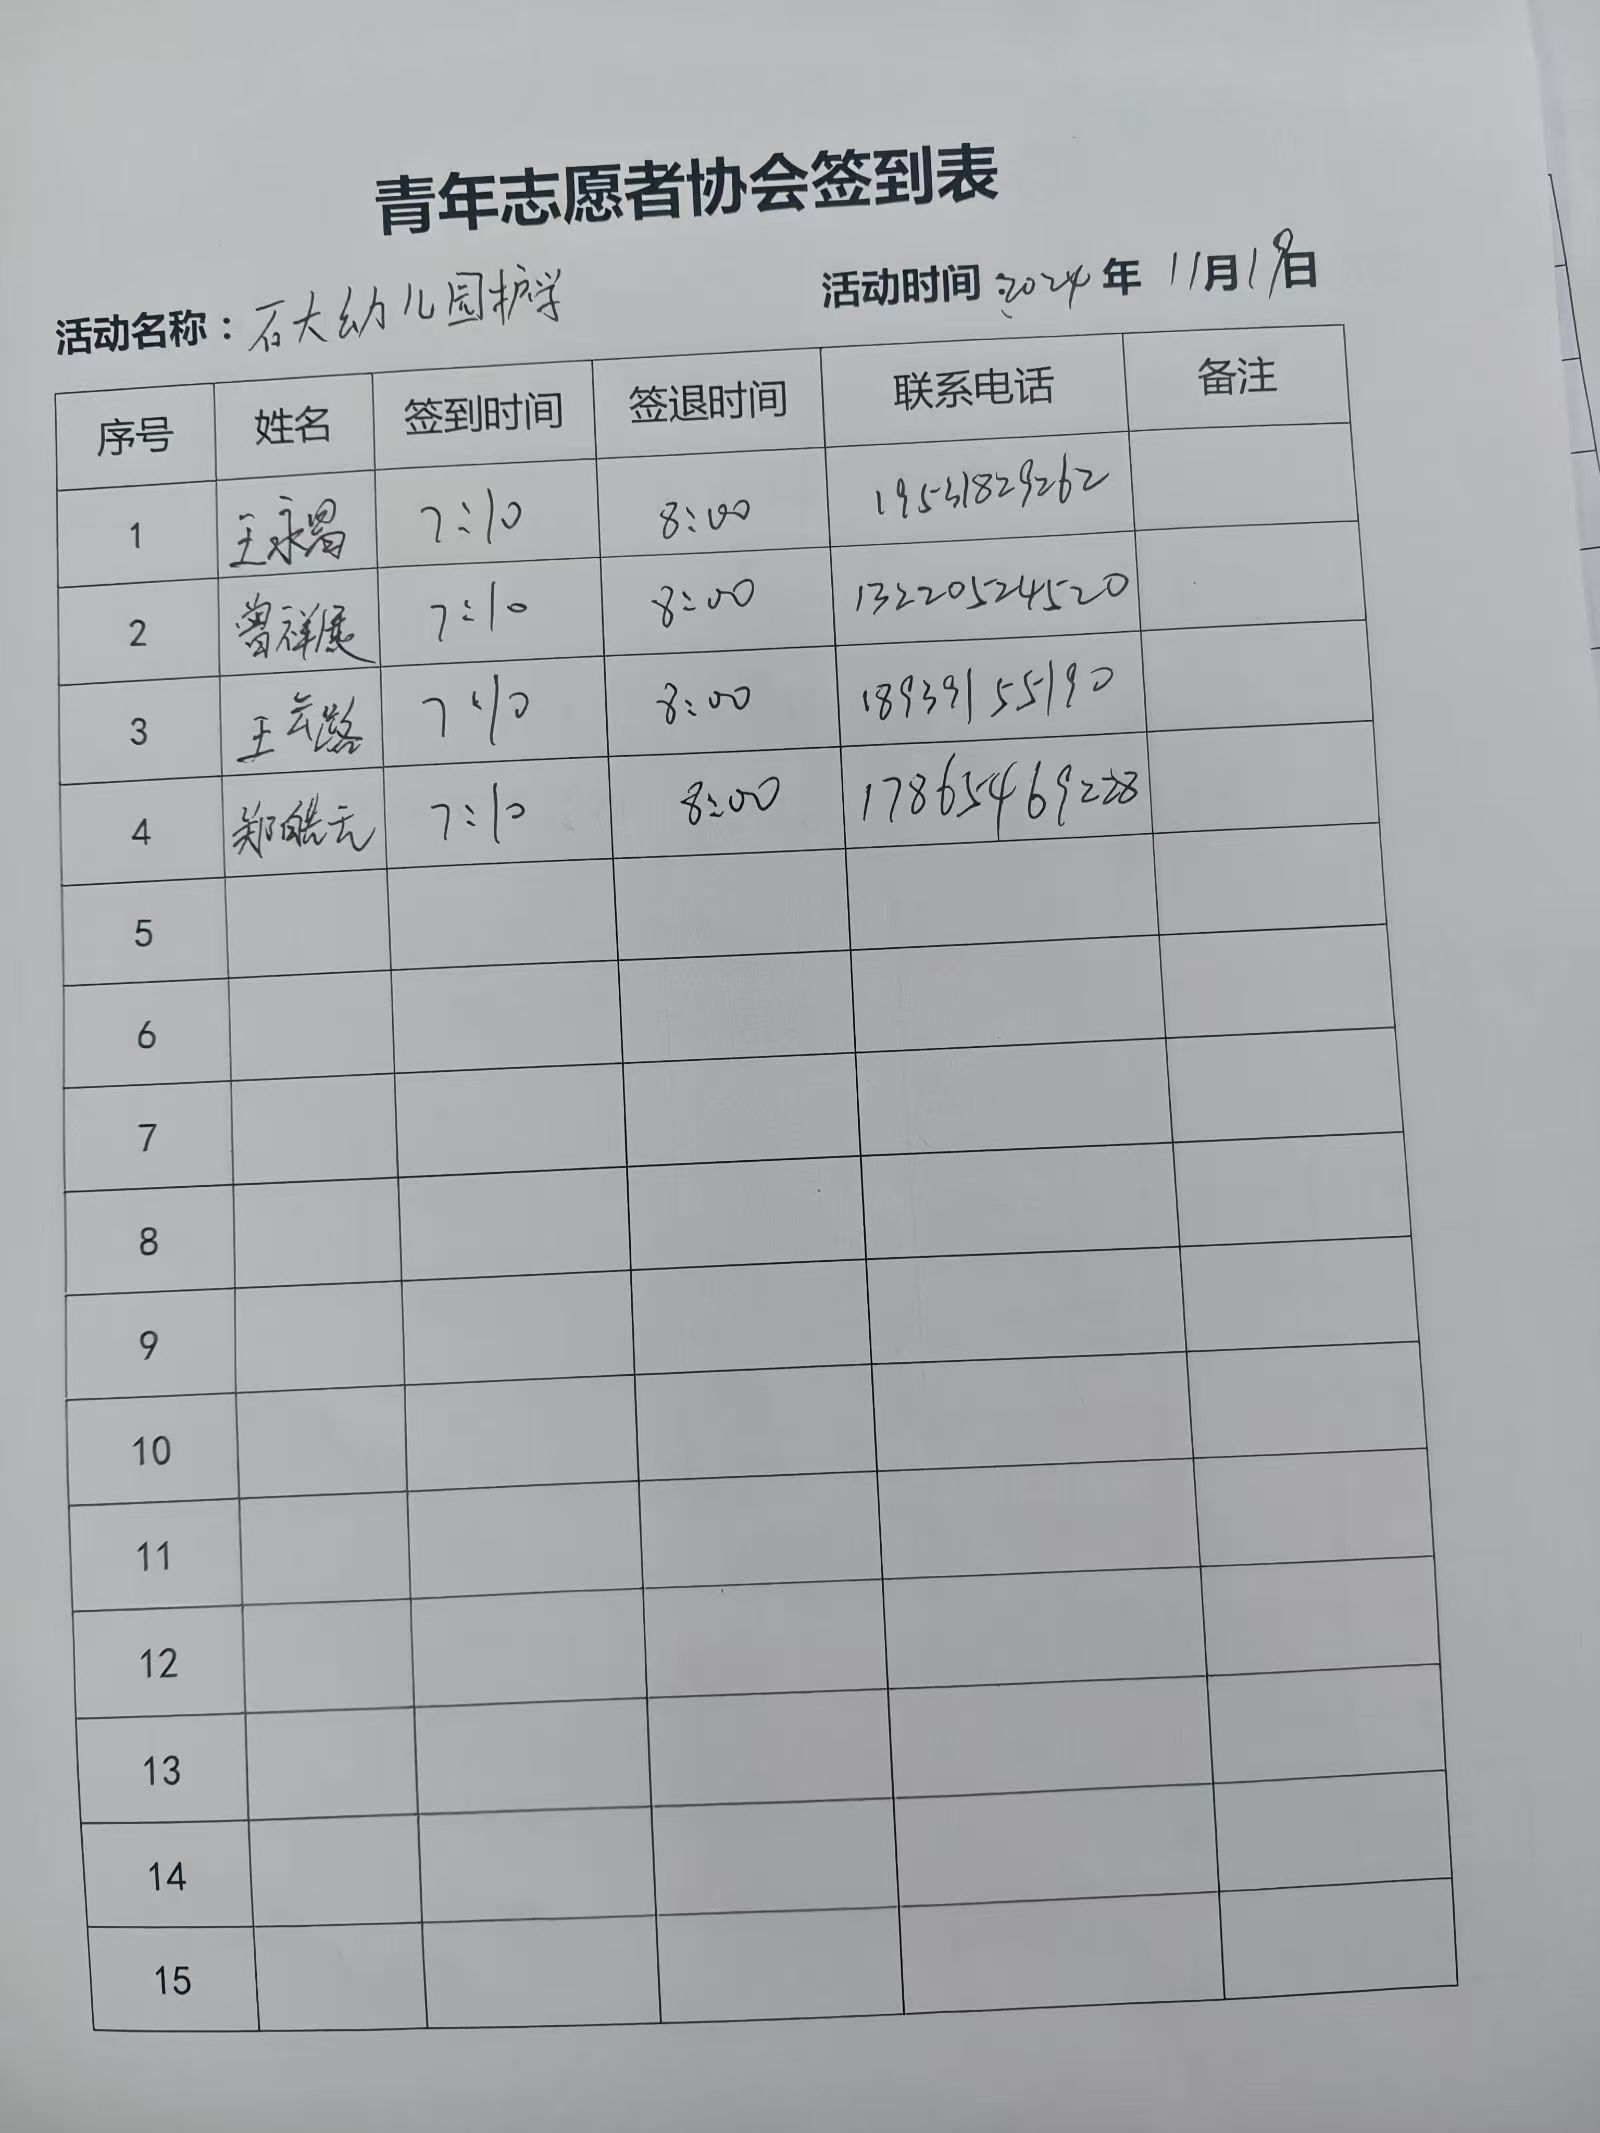 青年志愿者协会签到表
活动名称：石大幼儿园护学 活动时间：2024年11月19日
序号 姓名 签到时间 签退时间 联系电话 备注
1 王永昌 7:10 8:00 19531829262
2 曾祥展 7:10 8:00 13220524520
3 王云璐 7:10 8:00 18939155190
4 郑皓元 7:10 8:00 17865469228
5
6
7
8
9
10
11
12
13
14
15